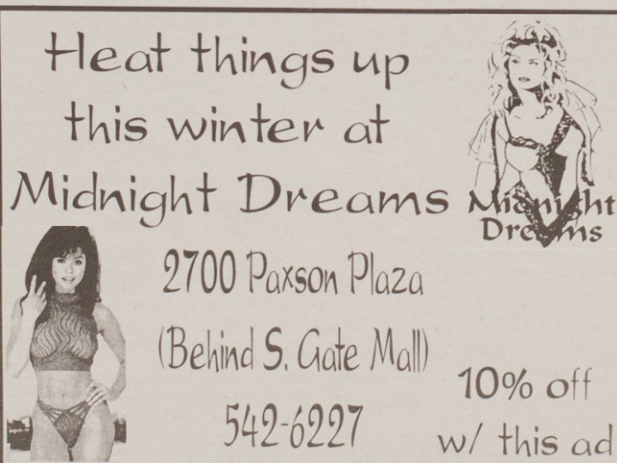 Heat things up
this winter at
Midnight Dreams
Midnight
Dreams
2700 Paxson Plaza
(Behind S. Gate Mall)
542-6227
10% off
w/ this ad